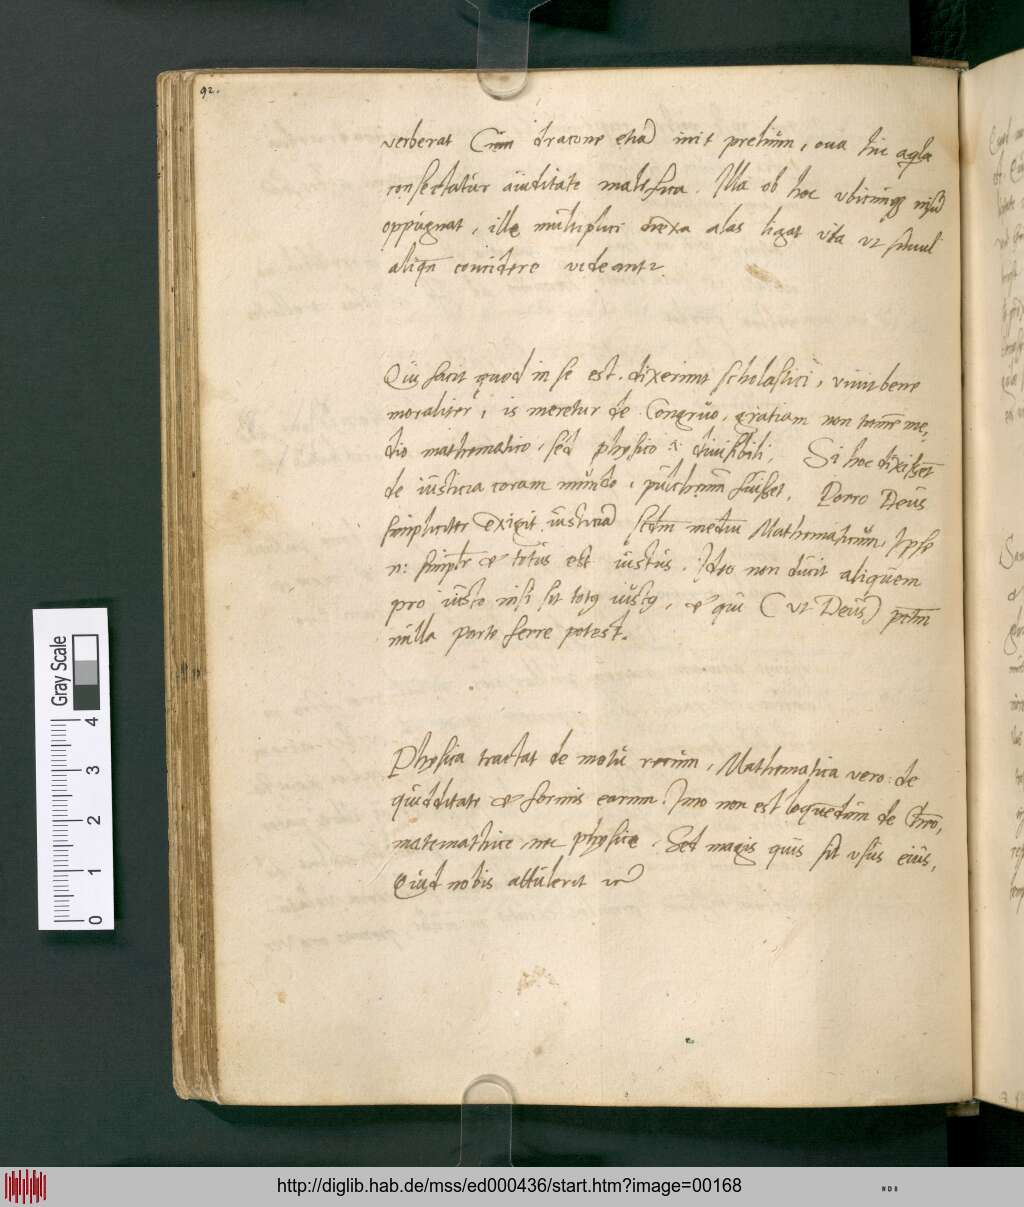 92.
verberat Cum dracone etiā init prelium, oua hic aqla
consectatur auiditate malefica. Illa ob hoc vbicunq3 visū
oppugnat, ille multiplici nexu alas ligat ita vt simul
aliqn̄ concidere videant2.
Qui facit quod in se est. dixerunt scholastici, viuit bene
moraliter, is meretur de Congruo, gratiam non tamē me,
dio mathematico, sed physico & diuisibili. Si hoc dixissēt
de iusticia coram mundo, pulchrum fuisset. Porro Deus
simpliciter exigit iusticiā scdm mediū Mathematicum, Ipse
n: simplr & totus est iustus. Ideo non ducit aliquem
pro iusto nisi sit totq iustq, & qui (vt Deus) pctm
nulla parte ferre potest.
Physica tractat de motu rerum, Mathematica vero: de
quidditate & formis earum. Imo non est loquēdum de Chro,
matemathice, nec physice. Sed magis quis sit vsus eius,
Quid nobis attulerit
Gray Scale
0 1 2 3 4
http://diglib.hab.de/mss/ed000436/start.htm?image=00168